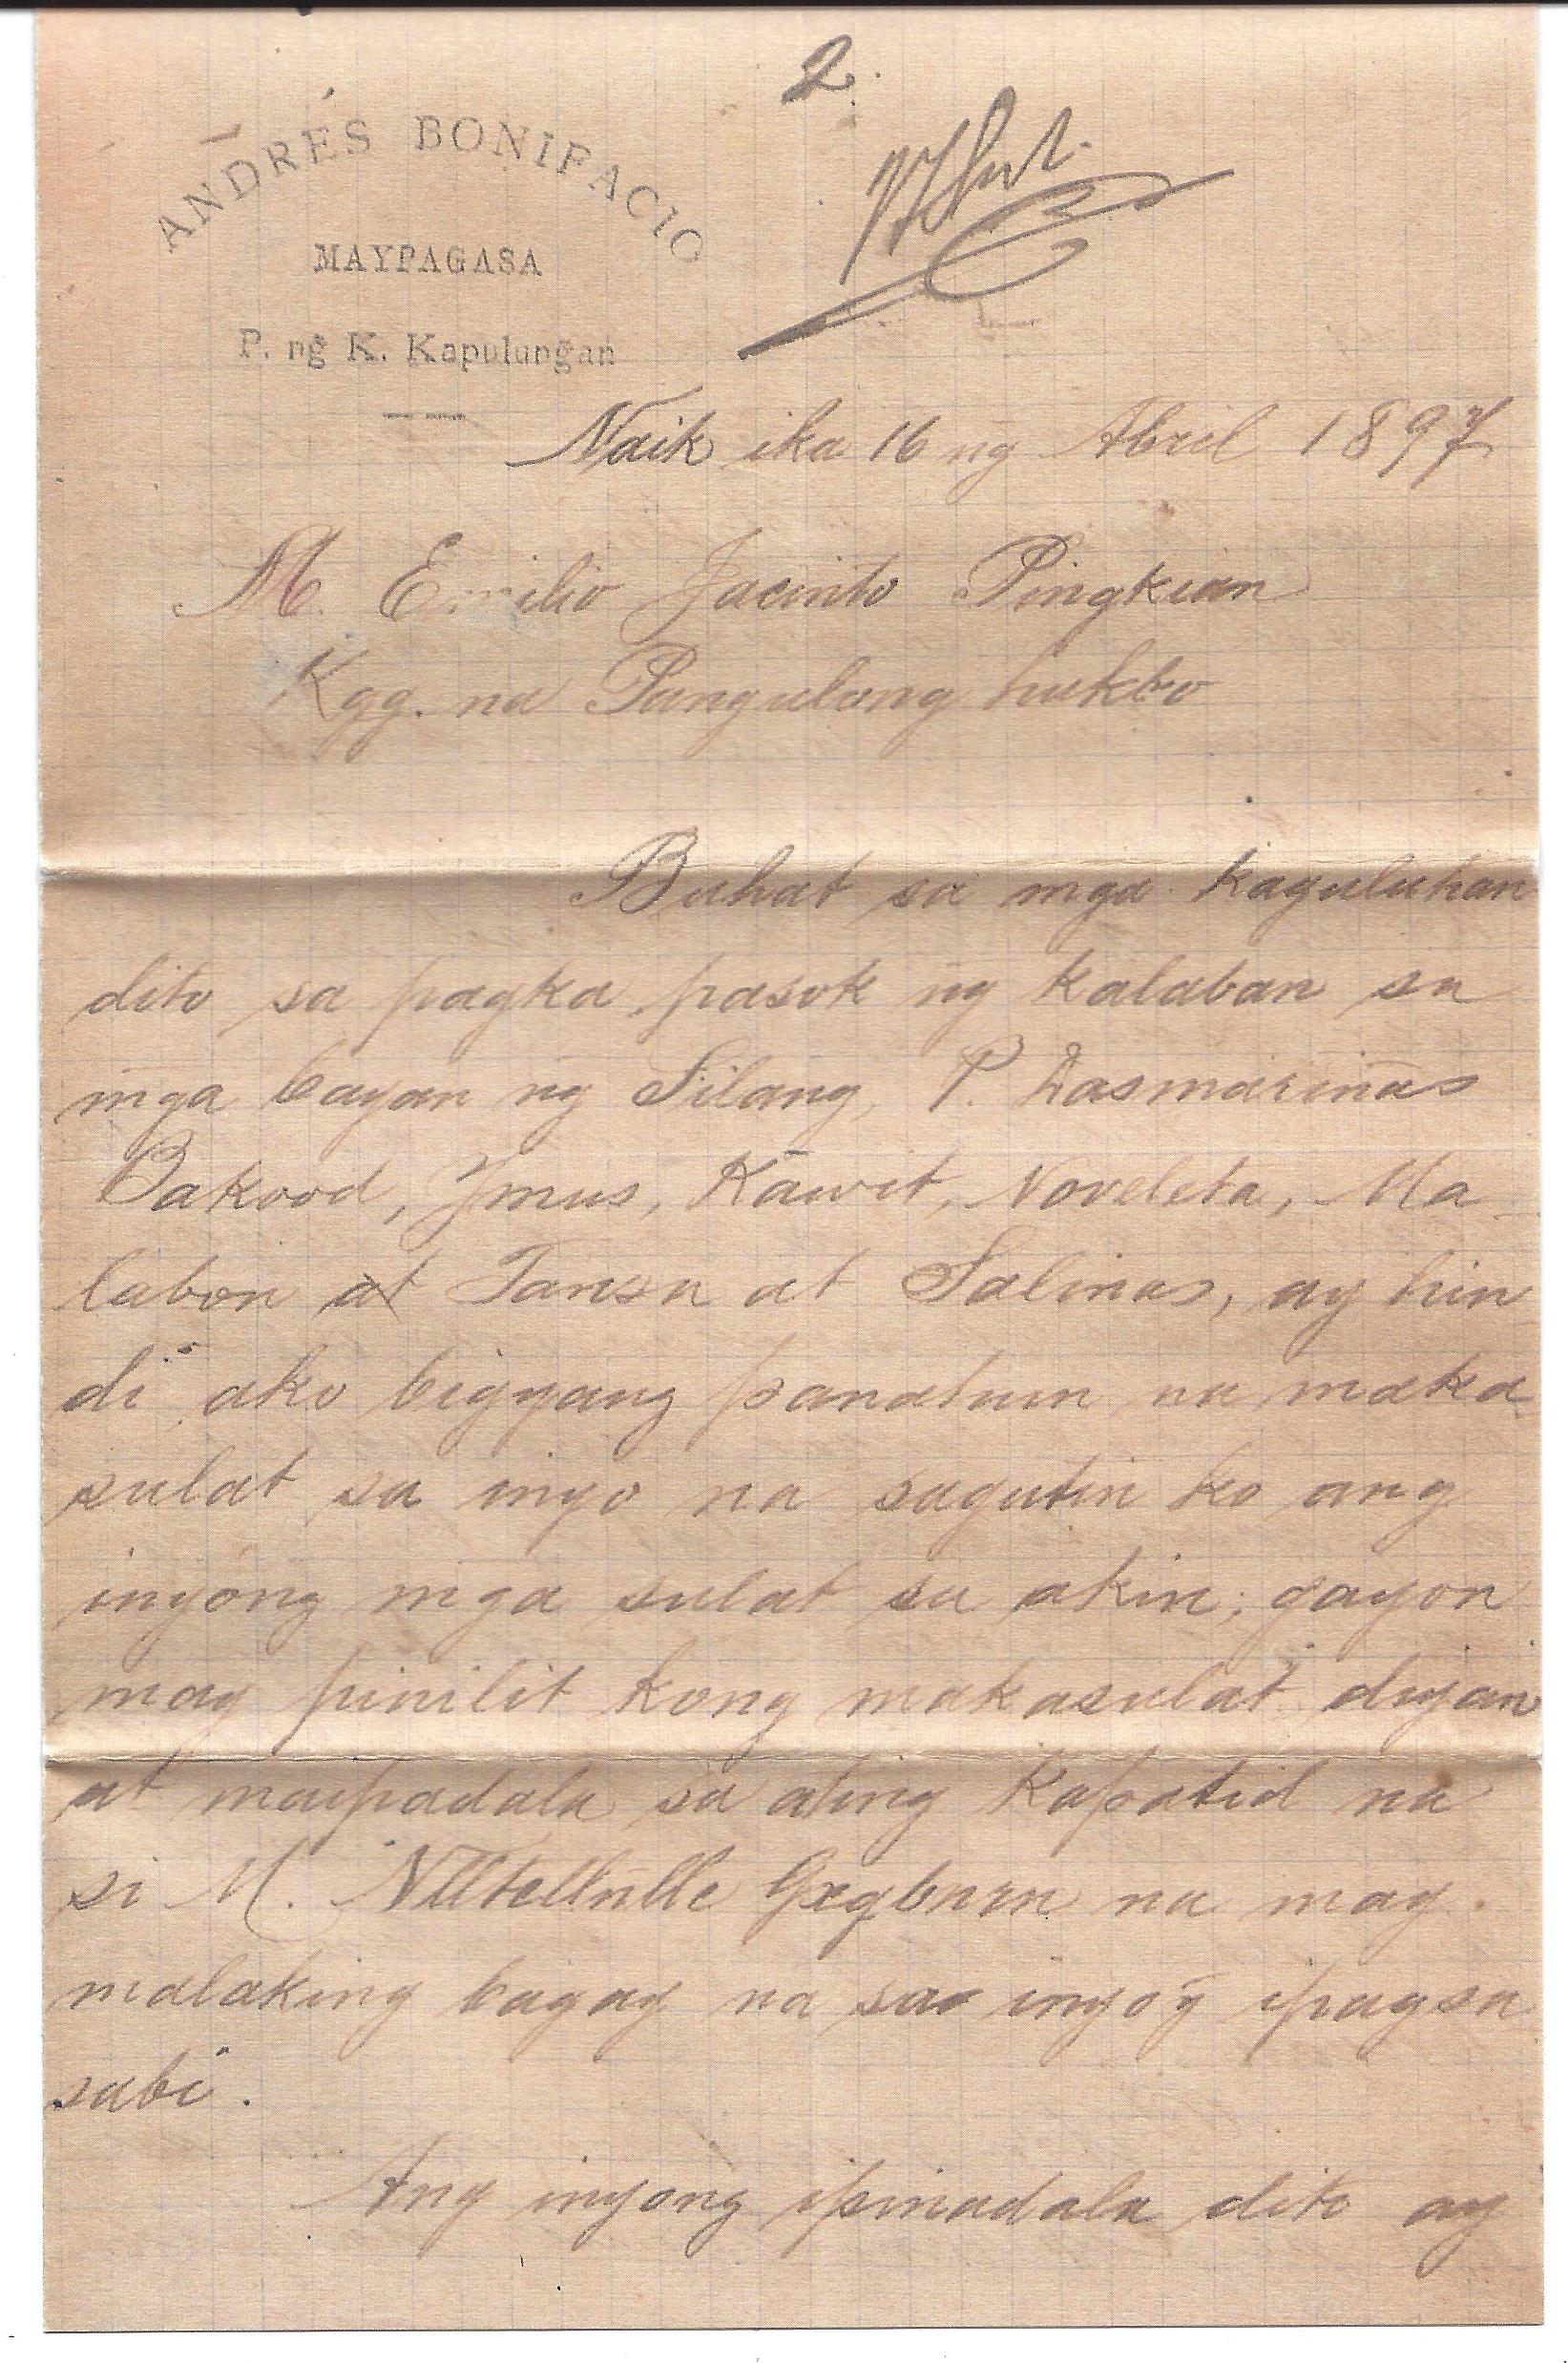 2.
ANDRÉS BONIFACIO
MAYPAGASA
P. ng K. Kapulungan
Naik ika 16 ng̃ Abril 1897
M. Emilio Jacinto Pingkian
Kgg. na Pangulong hukbo
Buhat sa mga kaguluhan
dito sa pagka pasok ng̃ kalaban sa
mg̃a bayan ng̃ Silang, P. Dasmariñas
Bakood, Ymus, Kawit, Noveleta, Ma
labon at Tansa at Salinas, ay hin
di ako bigyang panahun na maka
sulat sa inyo na sagutin ko ang
inyong mg̃a sulat sa akin; gayon
may pinilit kong makasulat diyan
at maipadala sa ating kapatid na
si M. na may
malaking bagay na sa inyo'y ipagsa
sabi.
Ang inyong ipinadala dito ay